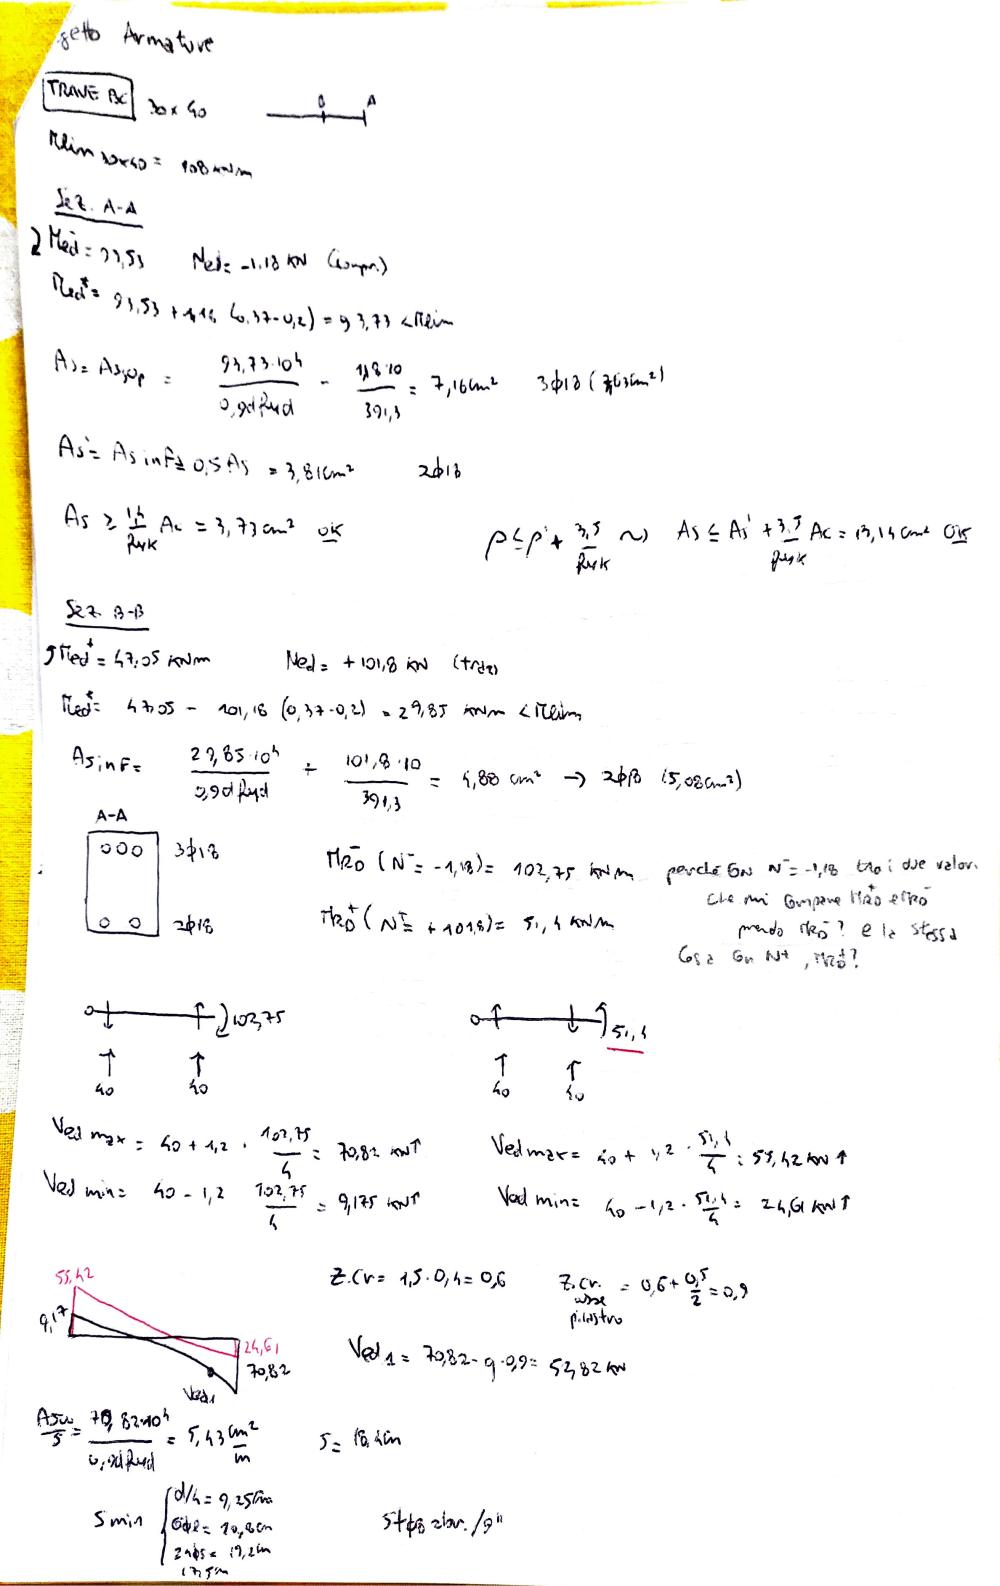 getto Armature
TRAVE BC 30x40 B A
Mlim 30x40 = 108 kNm
Sez. A-A
Med = 93,53 Ned = -1.18 kN (compr.)
Med* = 93,53 + 1,18 (0,37-0,2) = 93,73 < Mlim
As = As,sup = 93,73·10⁴ / 0,9d fyd - 1,18·10 / 391,3 = 7,16 cm² 3ϕ18 (7,63cm²)
As' = As inf ≥ 0,5 As = 3,81cm² 2ϕ18
As ≥ 1,4/fyk Ac = 3,73 cm² OK ρ ≤ ρ' + 3,5/fyk ~> As ≤ As' + 3.5/fyk Ac = 13,14 cm² OK
Sez. B-B
Med⁺ = 47,05 kNm Ned = +101,8 kN (traz)
Med* = 47,05 - 101,18 (0,37-0,2) = 29,85 kNm < Mlim
As inf = 29,85·10⁴ / 0,9d fyd + 101,8·10 / 391,3 = 4,88 cm² → 2ϕ18 (5,08cm²)
A-A
3ϕ18
2ϕ18
MRD⁻ (N⁻ = -1,18) = 102,75 kNm perché con N⁻ = -1,18 tra i due valori
che mi compare MRD⁺ e MRD⁻
MRD⁺ (N⁺ = +101,8) = 51,4 kNm prendo MRD⁻? e la stessa
cosa con N⁺, MRD⁺?
102,75 51,4
40 40 40 40
Ved max = 40 + 1,2 · 102,75/4 = 70,82 kN↑ Ved max = 40 + 1,2 · 51,4/4 = 55,42 kN ↑
Ved min = 40 - 1,2 102,75/4 = 9,175 kN↑ Ved min = 40 - 1,2 · 51,4/4 = 24,61 kN↑
55,42
9,17
24,61
70,82
Ved1
Z.Cr = 1,5·0,4 = 0,6 Z.cr. asse pilastro = 0,6 + 0,5/2 = 0,9
Ved 1 = 70,82 - q·0,9 = 52,82 kN
Asw/s = 70,82·10⁴ / 0,9d fyd = 5,43 cm²/m S = 18,4cm
S min { d/4 = 9,25cm
6ϕl = 10,8cm
24ϕs = 19,2cm
17,5cm
St ϕ8 2br. /9"